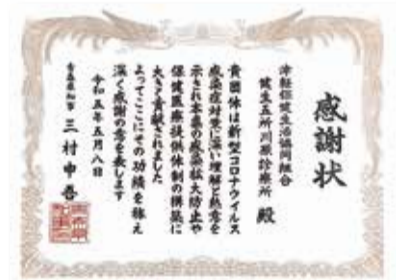 感謝状
津軽保健生活協同組合
健生五所川原診療所 殿
貴団体は新型コロナウイルス
感染症対策に深い理解と熱意を
示され本県の感染拡大防止や
保健医療提供体制の構築に
大きく貢献されました
よってここにその功績を称え
深く感謝の意を表します
令和五年五月八日
青森県知事 三村申吾